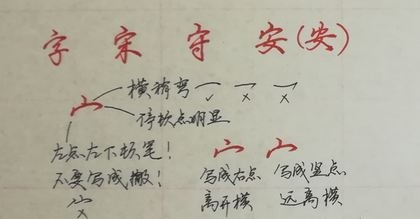 字 宋 守 安(安)
横稍弯 ✓ × ×
宀 停软点明显
左点左下顿笔!
不要写成撇!
×
写成右点 写成竖点
离开横 远离横